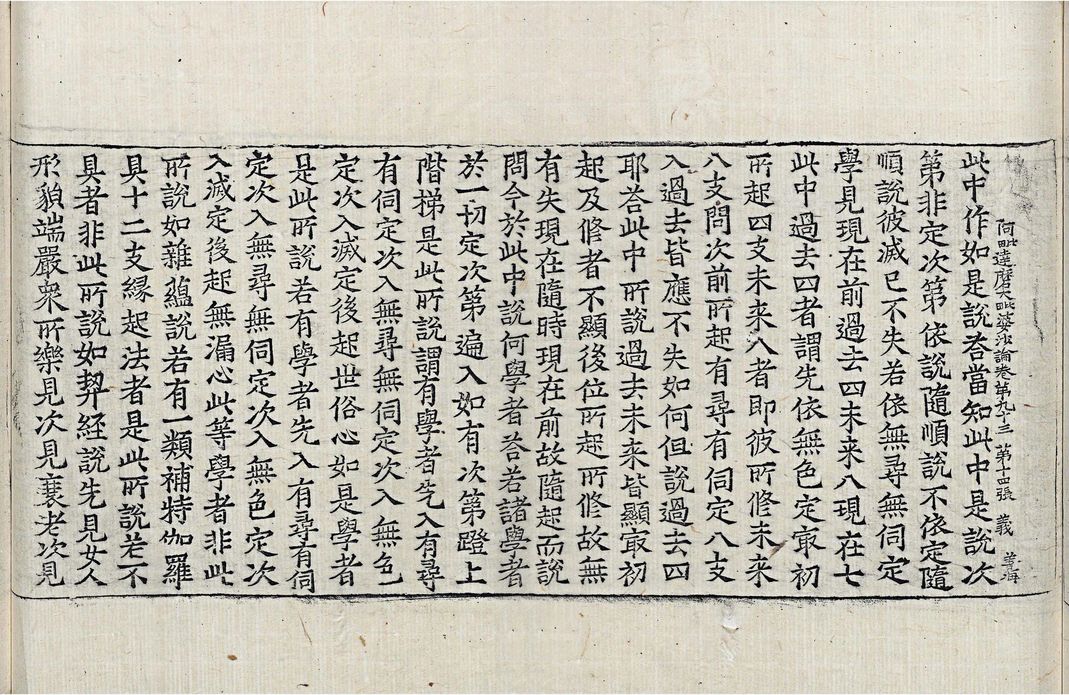 阿毗達磨大毗婆沙論卷第九十三 第十四張 義
此中作如是說荅當知此中是說次
第非定次第依說隨順說不依定隨
順說彼滅已不失若依無尋無伺定
學見現在前過去四未来八現在七
此中過去四者謂先依無色定㝡初
所起四支未来八者即彼所修未来
八支問次前所起有尋有伺定八支
入過去皆應不失如何但說過去四
耶荅此中所說過去未来皆顯㝡初
起及修者不顯後位所起所修故無
有失現在隨時現在前故隨起而說
問今於此中說何學者荅若諸學者
於一切定次第遍入如有次第蹬上
階梯是此所說謂有學者先入有尋
有伺定次入無尋無伺定次入無色
定次入滅定後起世俗心如是學者
是此所說若有學者先入有尋有伺
定次入無尋無伺定次入無色定次
入滅定後起無漏心此等學者非此
所說如雜蘊說若有一類補特伽羅
具十二支緣起法者是此所說若不
具者非此所說如契經說先見女人
形貌端嚴衆所樂見次見衰老次見